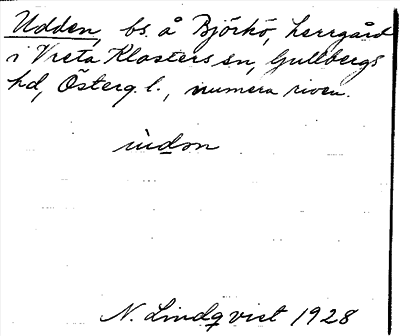 Udden, bs. å Björkö, herrgård
i Vreta Klosters sn, Gullbergs
hd, Österg. l., numera riven.
ùdon
N. Lindqvist 1928